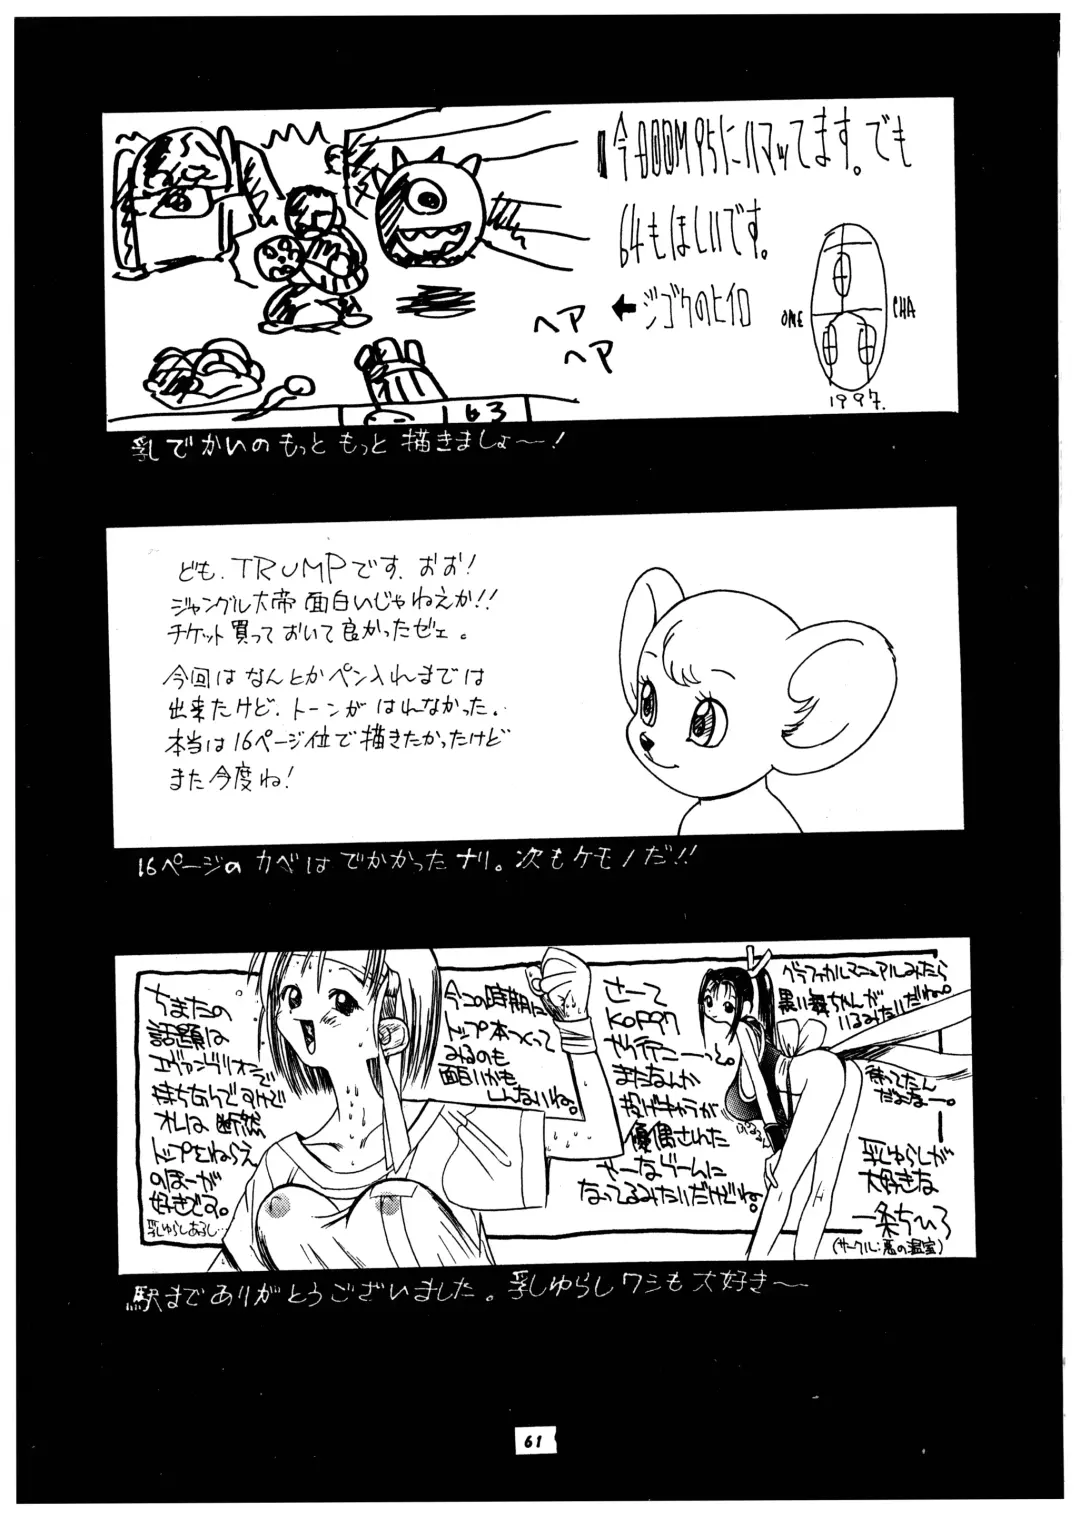 今DOOM95にハマッてます。でも
64もほしいです。
←ジゴクのヒイロ
ヘア
ヘア
ONE
CHA
1997.
63
乳でかいのもっともっと描きましょ〜!
ども、TRUMPです。おお!
ジャングル大帝面白いじゃねえか!!
チケット買っておいて良かったゼェ。
今回はなんとかペン入れまでは
出来たけど、トーンがはれなかった。
本当は16ページ位で描きたかったけど
また今度ね!
16ページのカベはでかかったナリ。次もケモノだ!!
ちまたの
話題は
エヴァンゲリオンで
持ちきりなんですけど
オレは断然
トップをねらえ
のほーが
好きどす。
乳ゆらしあるし…
今この時期に
トップ本つくって
みるのも
面白いかも
しんないね。
さーて
KOF97
またなんか
投げキャラが
優遇された
なってるみたいだけどね。
グラフィカルマニュアルみたら
黒い舞ちゃんが
いるみたいだね。
待ってたん
だよなー。
乳ゆらしが
大好きな
一条ちひろ
(サークル:悪の温室)
駅までありがとうございました。乳ゆらしワシも大好き〜
61